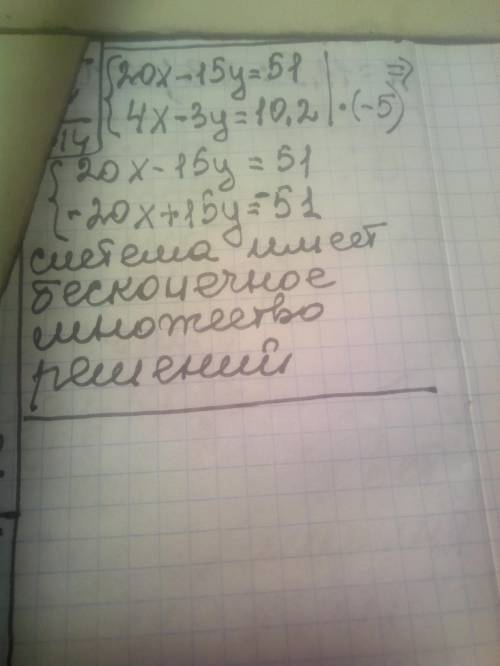 {20x-15y=51 | ⇒
{4x-3y=10,2 | ·(-5)
{20x-15y=51
{-20x+15y=-51
система имеет
бесконечное
множество
решений